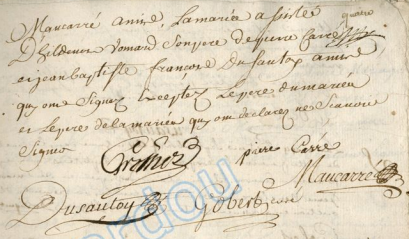 Maucarré amis, la mariée assistée
D'helduin Vomard son père de pierre Carré
et jean baptiste françois Dusautoy amis
qui ont Signez Excepté Le pere du marieu
et le pere de la mariée qui ont declarez ne Scavoir
Signer
pierre Carré
Maucarré
Dusautoy Gobert curé
ardou